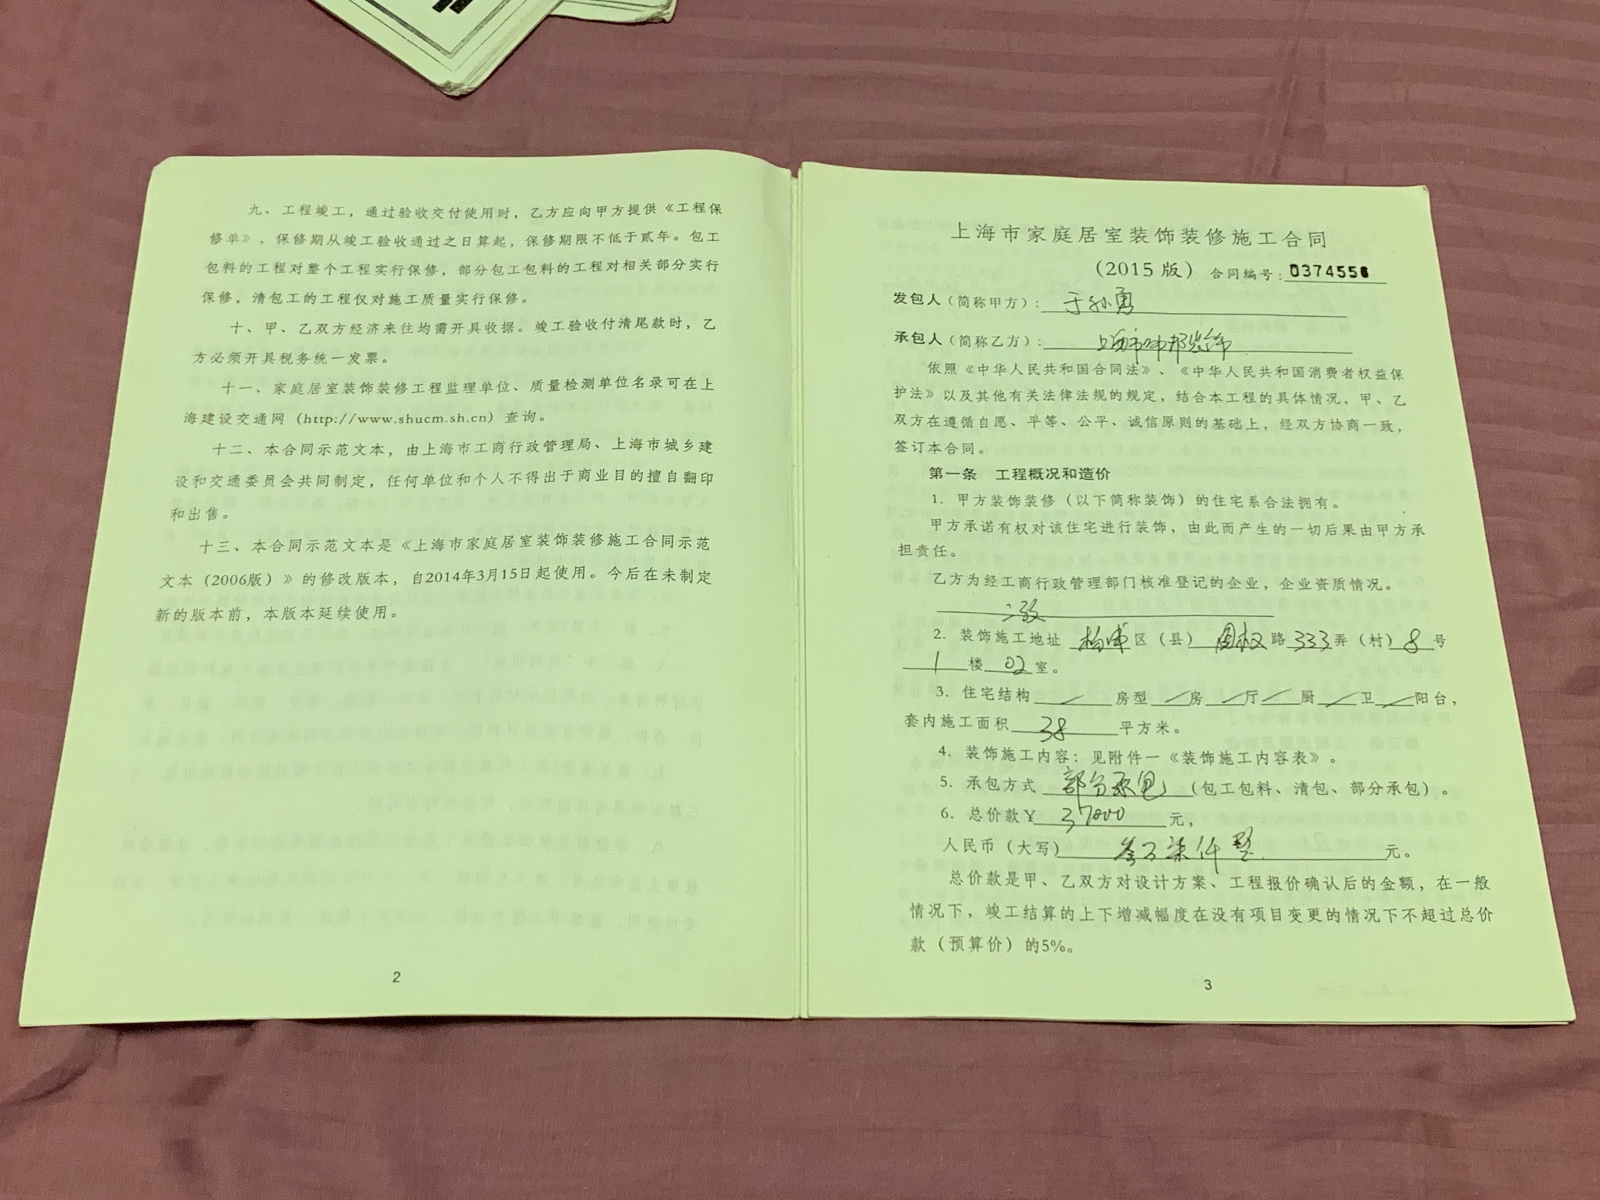 九、工程竣工，通过验收交付使用时，乙方应向甲方提供《工程保
修单》，保修期从竣工验收通过之日算起，保修期限不低于贰年。包工
包料的工程对整个工程实行保修，部分包工包料的工程对相关部分实行
保修，清包工的工程仅对施工质量实行保修。
十、甲、乙双方经济来往均需开具收据。竣工验收付清尾款时，乙
方必须开具税务统一发票。
十一、家庭居室装饰装修工程监理单位、质量检测单位名录可在上
海建设交通网（http://www.shucm.sh.cn）查询。
十二、本合同示范文本，由上海市工商行政管理局、上海市城乡建
设和交通委员会共同制定，任何单位和个人不得出于商业目的擅自翻印
和出售。
十三、本合同示范文本是《上海市家庭居室装饰装修施工合同示范
文本（2006版）》的修改版本，自2014年3月15日起使用。今后在未制定
新的版本前，本版本延续使用。
2
上海市家庭居室装饰装修施工合同
（2015 版） 合同编号：0374556
发包人（简称甲方）：
承包人（简称乙方）：
依照《中华人民共和国合同法》、《中华人民共和国消费者权益保
护法》以及其他有关法律法规的规定，结合本工程的具体情况，甲、乙
双方在遵循自愿、平等、公平、诚信原则的基础上，经双方协商一致，
签订本合同。
第一条 工程概况和造价
1. 甲方装饰装修（以下简称装饰）的住宅系合法拥有。
甲方承诺有权对该住宅进行装饰，由此而产生的一切后果由甲方承
担责任。
乙方为经工商行政管理部门核准登记的企业，企业资质情况。
2. 装饰施工地址 杨浦 区（县） 国权 路 333 弄（村） 8 号
1 楼 02 室。
3. 住宅结构 / 房型 / 房 / 厅 / 厨 / 卫 / 阳台，
套内施工面积 38 平方米。
4. 装饰施工内容：见附件一《装饰施工内容表》。
5. 承包方式 部分承包 （包工包料、清包、部分承包）。
6. 总价款￥ 37000 元，
人民币（大写） 叁万柒仟整 元。
总价款是甲、乙双方对设计方案、工程报价确认后的金额，在一般
情况下，竣工结算的上下增减幅度在没有项目变更的情况下不超过总价
款（预算价）的5%。
3